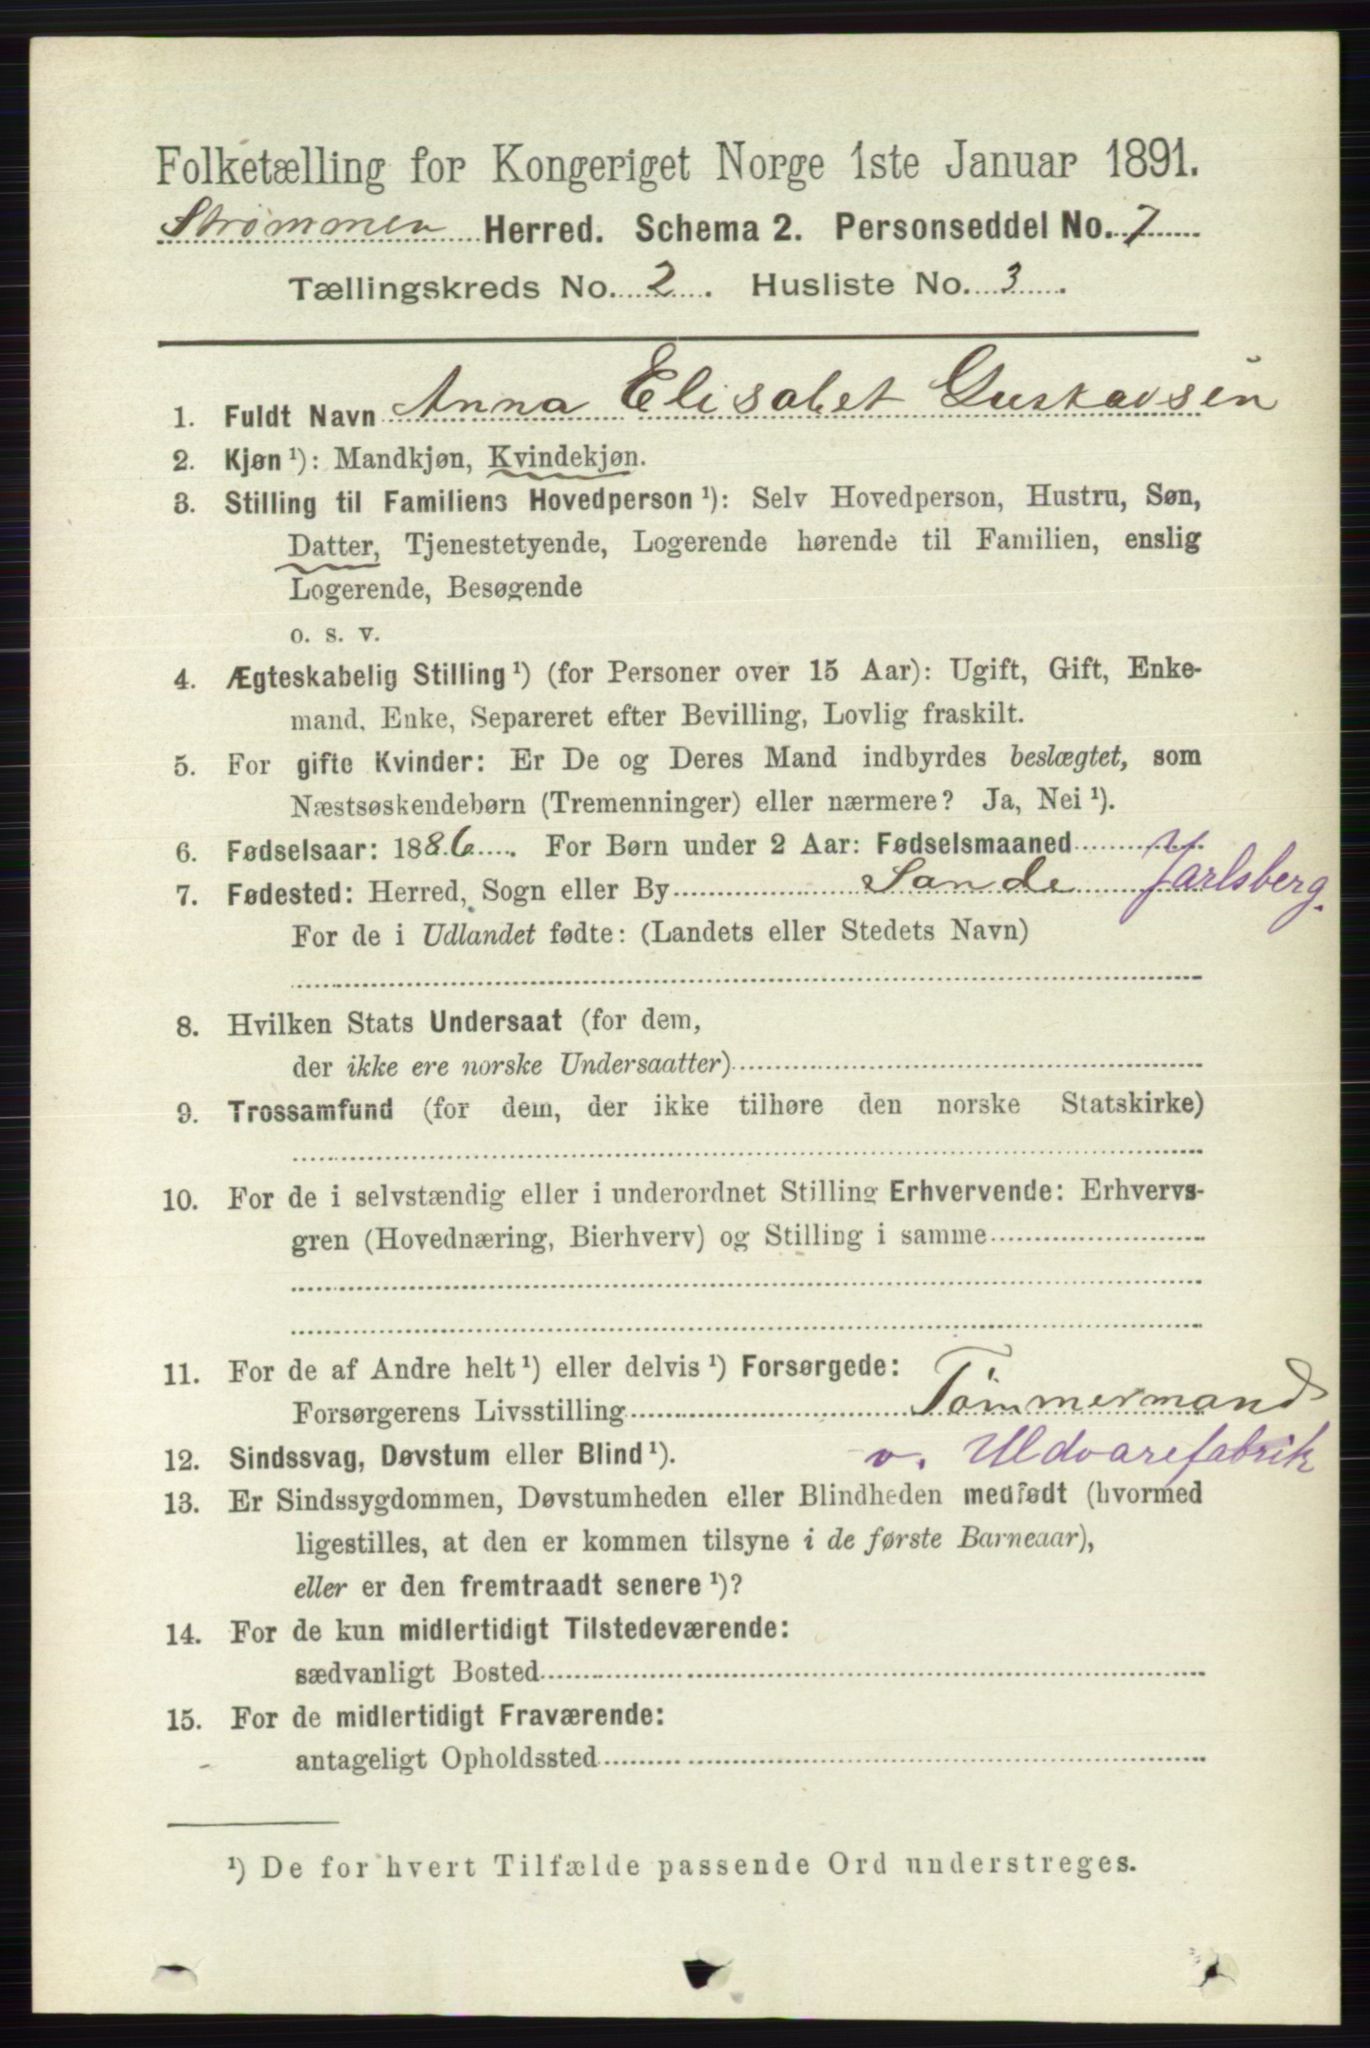 Folketælling for Kongeriget Norge 1ste Januar 1891.
Strømmen Herred. Schema 2. Personseddel No. 7
Tællingskreds No. 2. Husliste No. 3.
1. Fuldt Navn Anna Elisabet Gustavsen
2. Kjøn ¹): Mandkjøn, Kvindekjøn.
3. Stilling til Familiens Hovedperson ¹): Selv Hovedperson, Hustru, Søn,
Datter, Tjenestetyende, Logerende hørende til Familien, enslig
Logerende, Besøgende
o. s. v.
4. Ægteskabelig Stilling ¹) (for Personer over 15 Aar): Ugift, Gift, Enke-
mand, Enke, Separeret efter Bevilling, Lovlig fraskilt.
5. For gifte Kvinder: Er De og Deres Mand indbyrdes beslægtet, som
Næstsøskendebørn (Tremenninger) eller nærmere? Ja, Nei ¹).
6. Fødselsaar: 1886. For Børn under 2 Aar: Fødselsmaaned
7. Fødested: Herred, Sogn eller By Sande Jarlsberg.
For de i Udlandet fødte: (Landets eller Stedets Navn)
8. Hvilken Stats Undersaat (for dem,
der ikke ere norske Undersaatter)
9. Trossamfund (for dem, der ikke tilhøre den norske Statskirke)
10. For de i selvstændig eller i underordnet Stilling Erhvervende: Erhvervs-
gren (Hovednæring, Bierhverv) og Stilling i samme
11. For de af Andre helt ¹) eller delvis ¹) Forsørgede:
Forsørgerens Livsstilling Tömmermand
v. Uldvarefabrik
12. Sindssvag, Døvstum eller Blind ¹).
13. Er Sindssygdommen, Døvstumheden eller Blindheden medfødt (hvormed
ligestilles, at den er kommen tilsyne i de første Barneaar),
eller er den fremtraadt senere ¹)?
14. For de kun midlertidigt Tilstedeværende:
sædvanligt Bosted
15. For de midlertidigt Fraværende:
antageligt Opholdssted
¹) De for hvert Tilfælde passende Ord understreges.